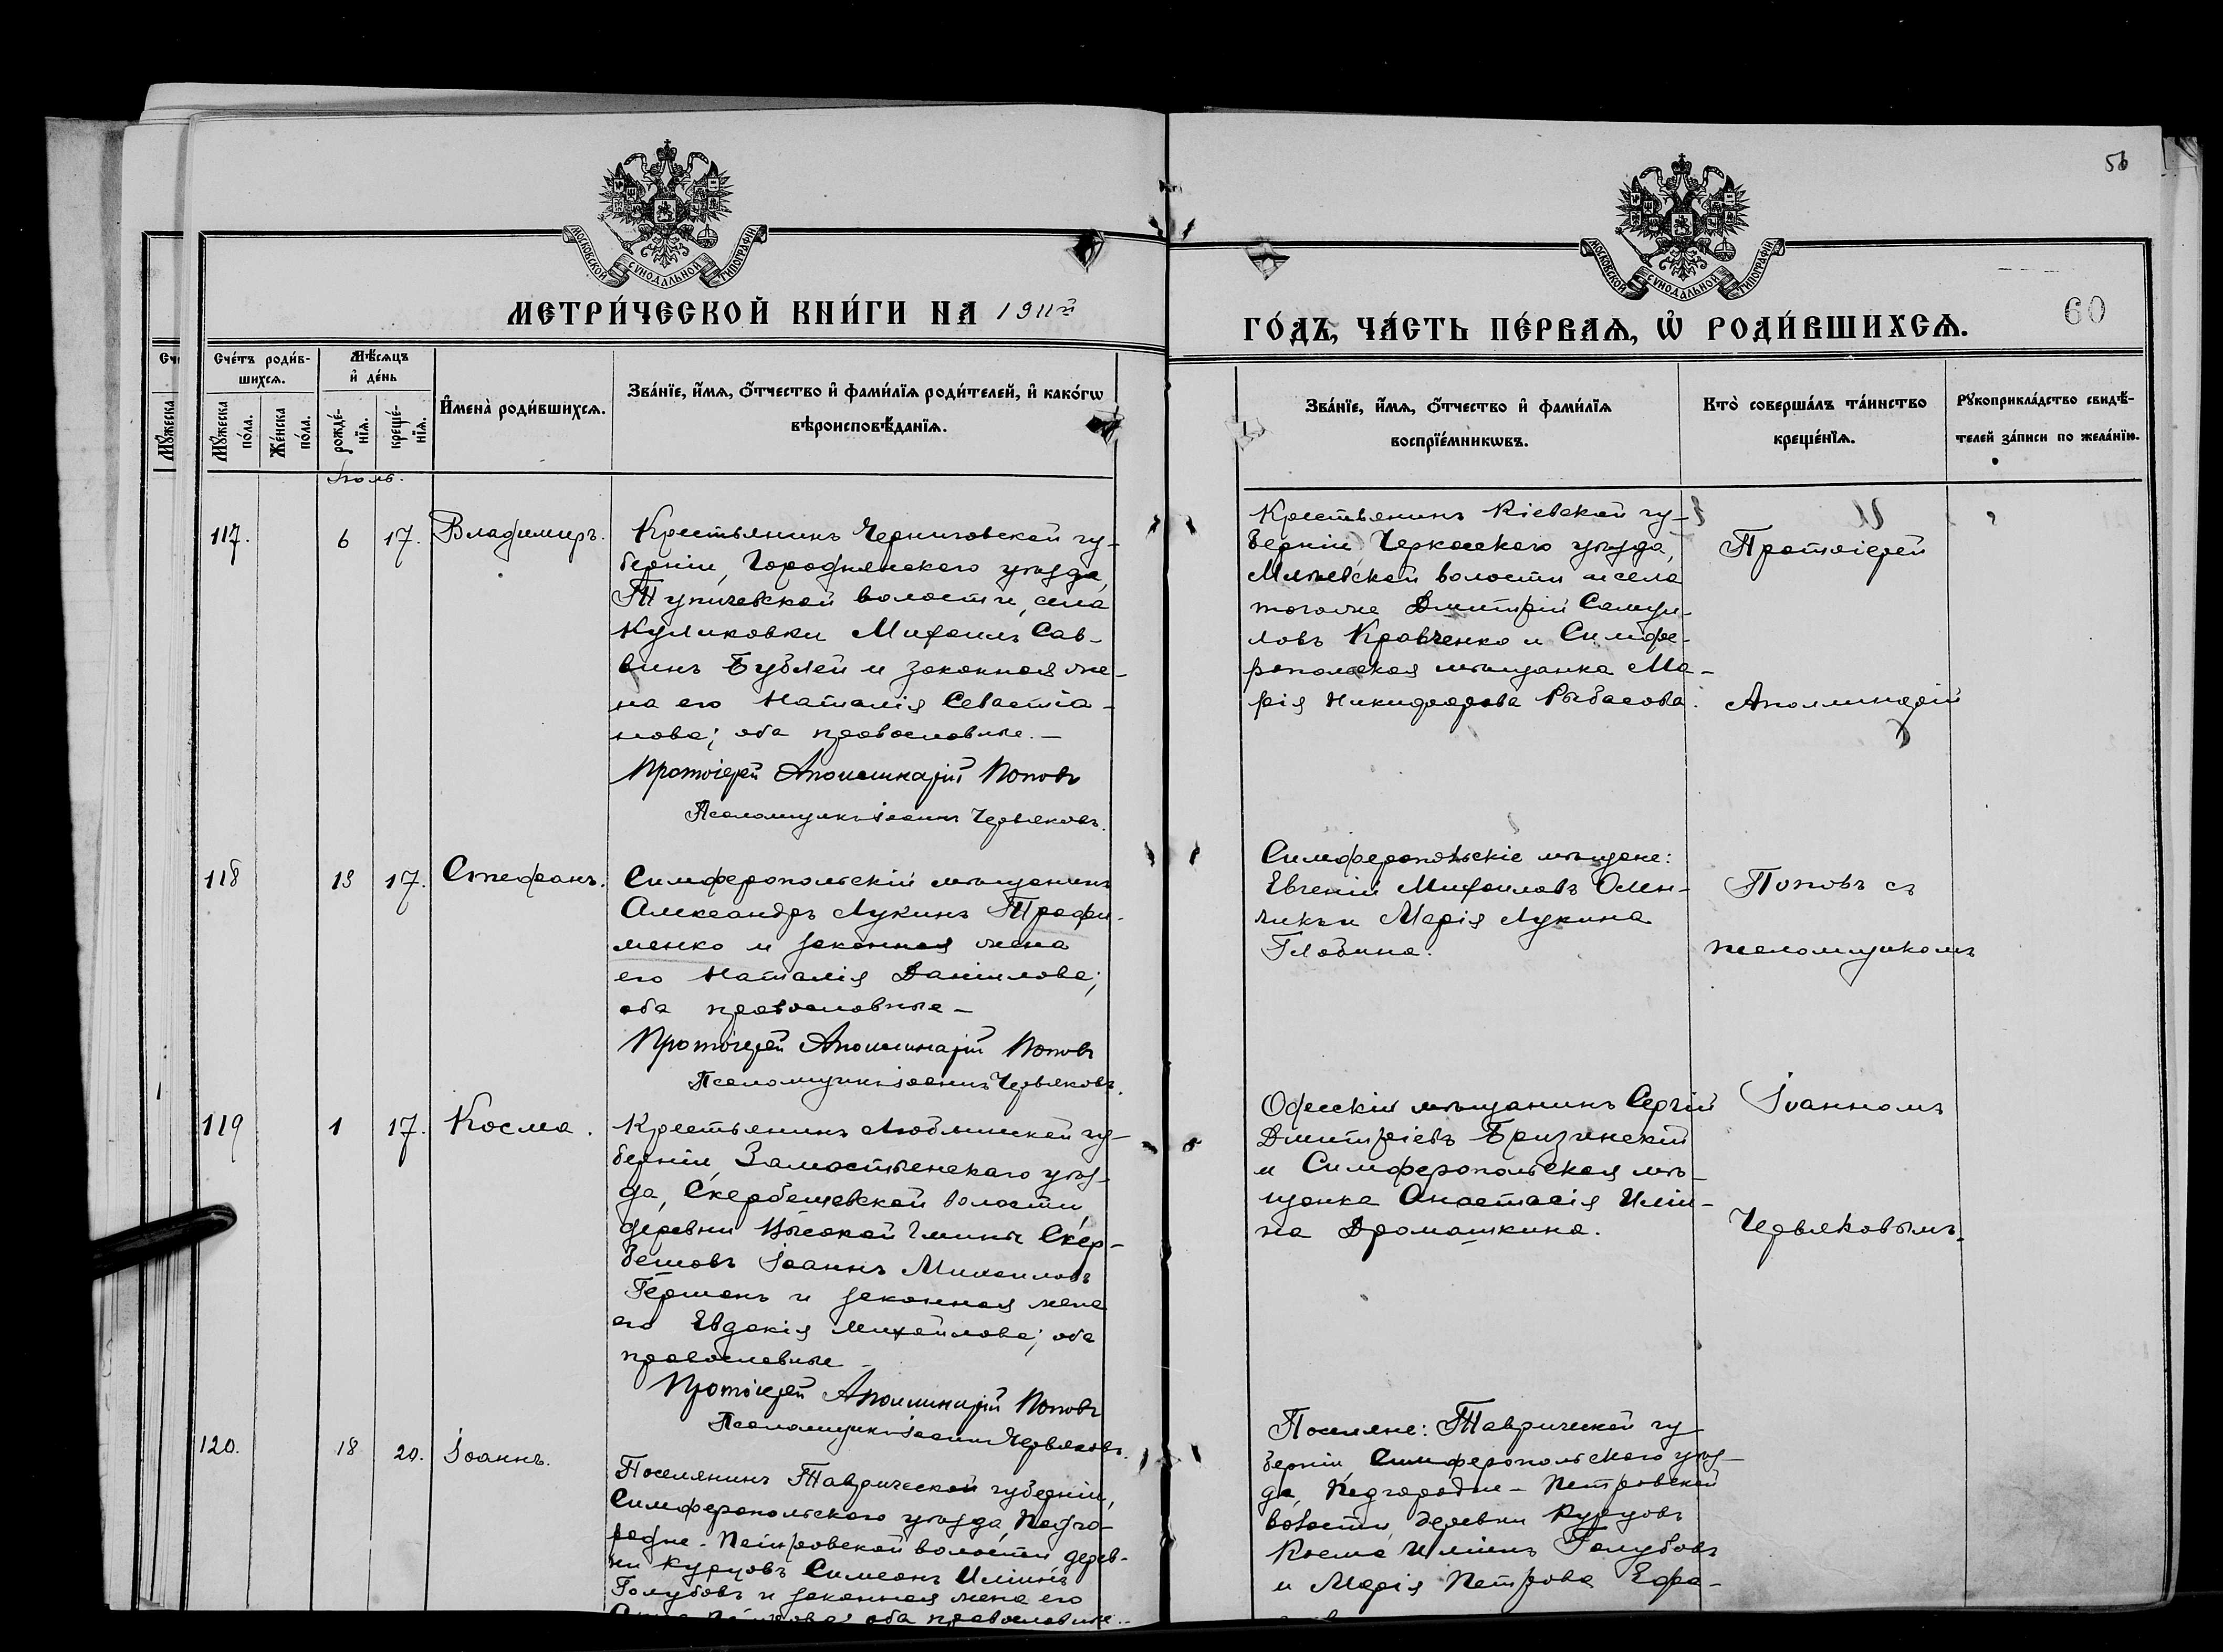 56
МОСКОВСКОЙ СѴНОДАЛЬНОЙ ТИПОГРАФІИ
МОСКОВСКОЙ СѴНОДАЛЬНОЙ ТИПОГРАФІИ
МЕТРИ́ЧЕСКОЙ КНИ́ГИ НА 1911й
ГО́ДЪ, ЧА́СТЬ ПЕ́РВАѦ, Ѡ҆ РОДИ́ВШИХСѦ.
60
Сче́тъ роди́в-
шихсѧ.
Мꙋ́жеска по́ла.
Же́нска по́ла.
Мѣ́сѧцъ
и҆ де́нь
рожде́-
нїѧ.
креще́-
нїѧ.
И҆мена̀ роди́вшихсѧ.
Зва́нїе, и҆́мѧ, ѻ҆́тчество и҆ фами́лїѧ роди́телей, и҆ како́гѡ
вѣроисповѣ́данїѧ.
Зва́нїе, и҆́мѧ, ѻ҆́тчество и҆ фами́лїѧ
воспрїе́мникѡвъ.
Кто̀ соверша́лъ та́инство
креще́нїѧ.
Рꙋкоприкла́дство свидѣ́-
телей за́писи по жела́нїю.
Іюль.
117.
6
17.
Владимиръ.
Крестьянинъ Черниговской гу-
берніи, Городнянскаго уѣзда,
Тупичевской волости, села
Куликовки Михаилъ Сав-
винъ Бублей и законная же-
на его Наталія Севастіа-
нова; оба православные.—
Протоіерей Аполлинарій Поповъ
Псаломщикъ Іоаннъ Червяковъ.
Крестьянинъ Кіевской гу-
берніи Черкасскаго уѣзда,
Мліевской волости и села
тогоже Дмитрій Самуи-
ловъ Кравченко и Симфе-
ропольская мѣщанка Ма-
рія Никифорова Рыбасова.
Протоіерей
Аполлинарій
118
13
17.
Стефанъ.
Симферопольскій мѣщанинъ
Александръ Лукинъ Трофи-
менко и законная жена
его Наталія Даніилова;
оба православные—
Протоіерей Аполлинарій Поповъ
Псаломщикъ Іоаннъ Червяковъ.
Симферопольскіе мѣщане:
Евгеній Михаиловъ
и Марія Лукина
Глобина.
Поповъ съ
псаломщикомъ
119
1
17.
Косма.
Крестьянинъ Люблинской гу-
берніи, Замостьенскаго уѣз-
да, Скербешевской волости,
деревни Высокой Гмины Скер-
бешовъ Іоаннъ Михаиловъ
Германъ и законная жена
его Евдокія Михайлова; оба
православные—
Протоіерей Аполлинарій Поповъ
Псаломщикъ Іоаннъ Червяковъ.
Одесскій мѣщанинъ Сергій
Дмитріевъ
и Симферопольская мѣ-
щанка Анастасія Иліи-
на Дромашкина.
Іоанномъ
Червяковымъ.
120.
18
20.
Іоаннъ.
Поселянинъ Таврической губерніи,
Симферопольскаго уѣзда, Подго-
родне-Петровской волости дерев-
ни Курцовъ Симеонъ Иліинъ
Голубовъ и законная жена его
Петрова; оба православные.—
Поселяне: Таврической гу
берніи Симферопольскаго уѣз-
да, Подгородне-Петровской
волости, деревни Курцовъ
Косма Иліинъ Голубовъ
и Марія Петрова Ефра-